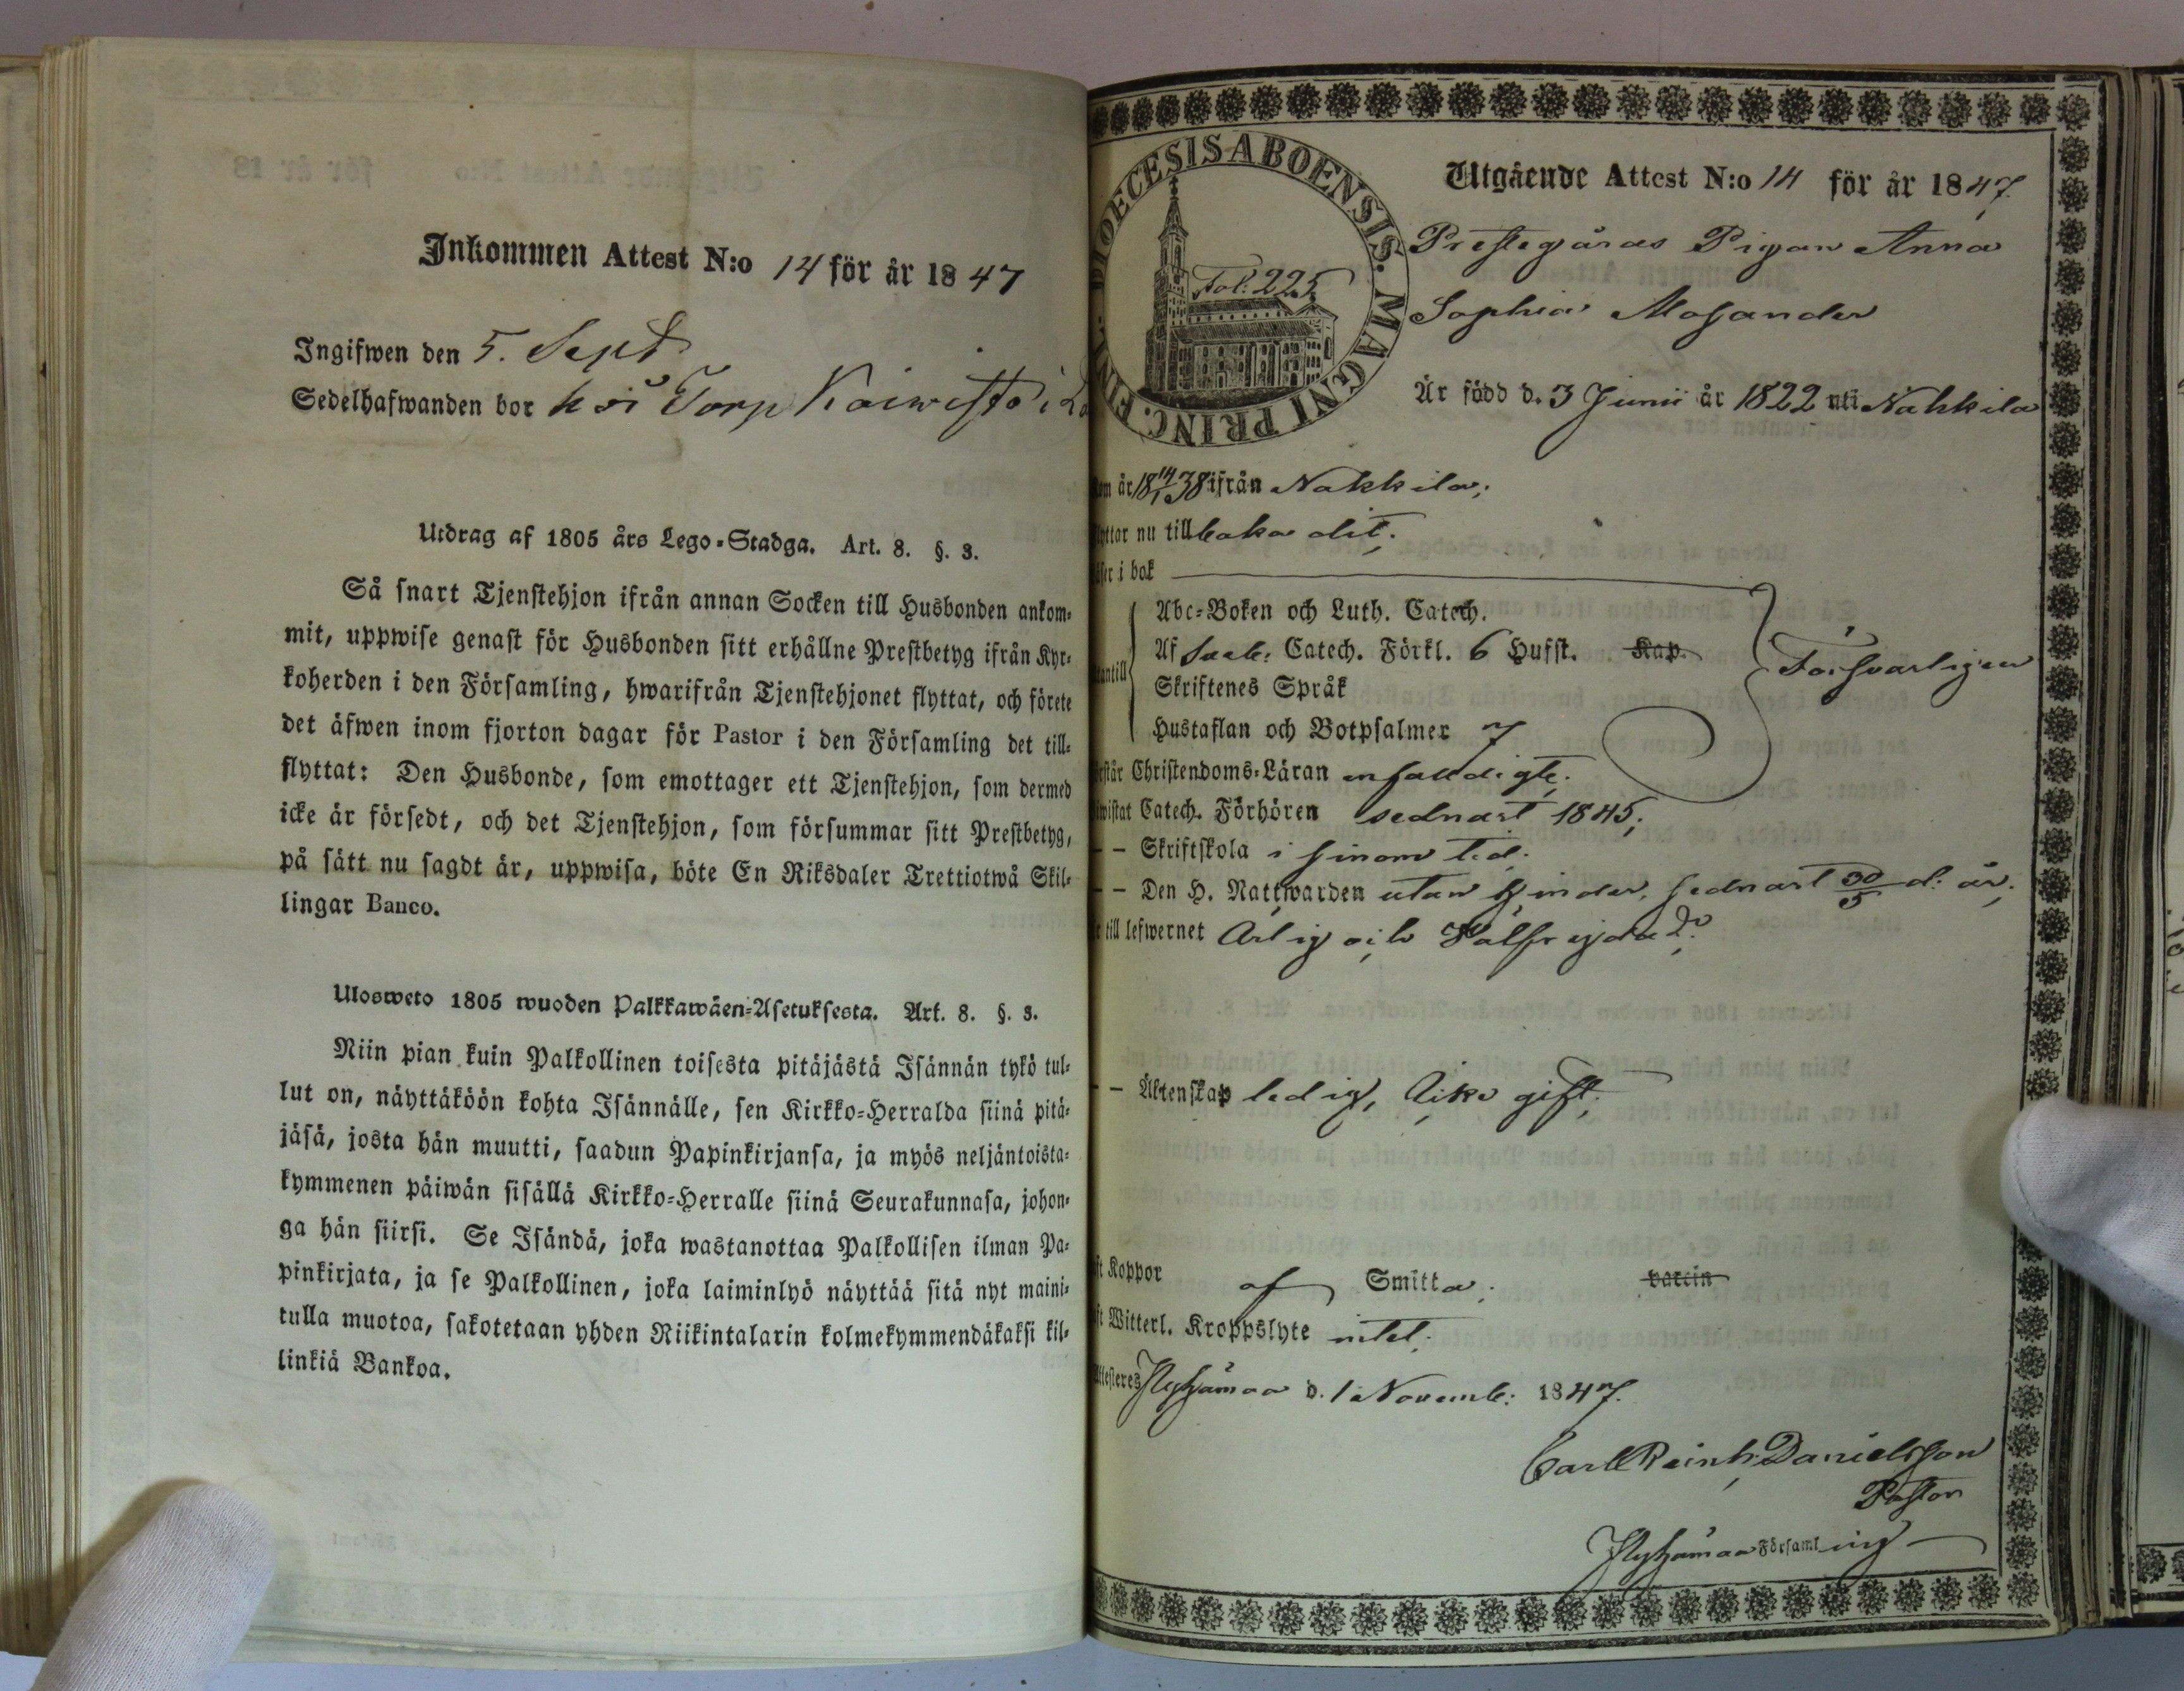 Inkommen Attest N:o 14 för år 1847
Ingifwen den 5. Sept
Sedelhafwanden bor hos Torp Koiwisto i
Utdrag af 1805 års Lego-Stadga. Art. 8. §. 3.
Så snart Tjenstehjon ifrån annan Socken till Husbonden ankom-
mit, uppwise genast för Husbonden sitt erhållne Prestbetyg ifrån Kyr-
koherden i den Församling, hwarifrån Tjenstehjonet flyttat, och förete
det äfwen inom fjorton dagar för Pastor i den Församling det till-
flyttat: Den Husbonde, som emottager ett Tjenstehjon, som dermed
icke är försedt, och det Tjenstehjon, som försummar sitt Prestbetyg,
på sätt nu sagdt är, uppwisa, böte En Riksdaler Trettiotwå Skil-
lingar Banco.
Ulosweto 1805 wuoden Palkkawäen-Asetuksesta. Art. 8. §. 3.
Niin pian kuin Palkollinen toisesta pitäjästä Isännän tykö tul-
lut on, näyttäköön kohta Isännälle, sen Kirkko-Herralda siinä pitä-
jäsä, josta hän muutti, saadun Papinkirjansa, ja myös neljäntoista-
kymmenen päiwän sisällä Kirkko-Herralle siinä Seurakunnasa, johon-
ga hän siirsi. Se Isändä, joka wastanottaa Palkollisen ilman Pa-
pinkirjata, ja se Palkollinen, joka laiminlyö näyttää sitä nyt maini-
tulla muotoa, sakotetaan yhden Riikintalarin kolmekymmendäkaksi kil-
linkiä Bankoa.
DIOECESIS ABOENSIS. MAGNI PRINC. FINL.
Fol. 225
Utgående Attest N:o 14 för år 1847.
Prestegårds Pigan Anna
Sophia Mosander
Är född d. 3 Junii år 1822 uti Nakkila
om år 18 14/1 38 ifrån Nakkila;
yttar nu tillbaka dit;
äser i bok
Abc-Boken och Luth. Catech.
Af Sveb: Catech. Förkl. 6 Hufst. Kap.
antill
Försvarligen
Skriftenes Språk
Hustaflan och Botpsalmer 7
rstår Christendoms-Läran enfaldigt;
wistat Catech. Förhören sednast 1845;
- - Skriftskola i sinom tid.
- - Den H. Nattwarden utan hinder, sednast 30/5 d. år;
till lefwernet Ärlig och välfrejdad;
- - Äktenskap ledig, Icke gift;
ft Koppor af Smitta; vaccin
ft Witterl. Kroppslyte intet;
ttesteres Nykämaa d. 1 Novemb: 1847.
Carl Reinh. Danielsson
Pastor
Församling